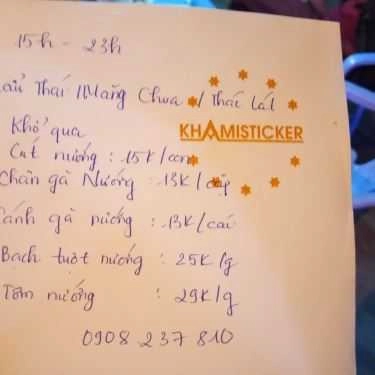 15h - 23h
Lẩu Thái / Măng Chua / Thác Lác
Khổ qua
KHAMISTICKER
Cút nướng : 15K/con
Chân gà Nướng : 13K/cặp
Cánh gà nướng : 13K/cái
Bạch tuột nướng : 25K/g
Tôm nướng : 29K/g
0908 237 810